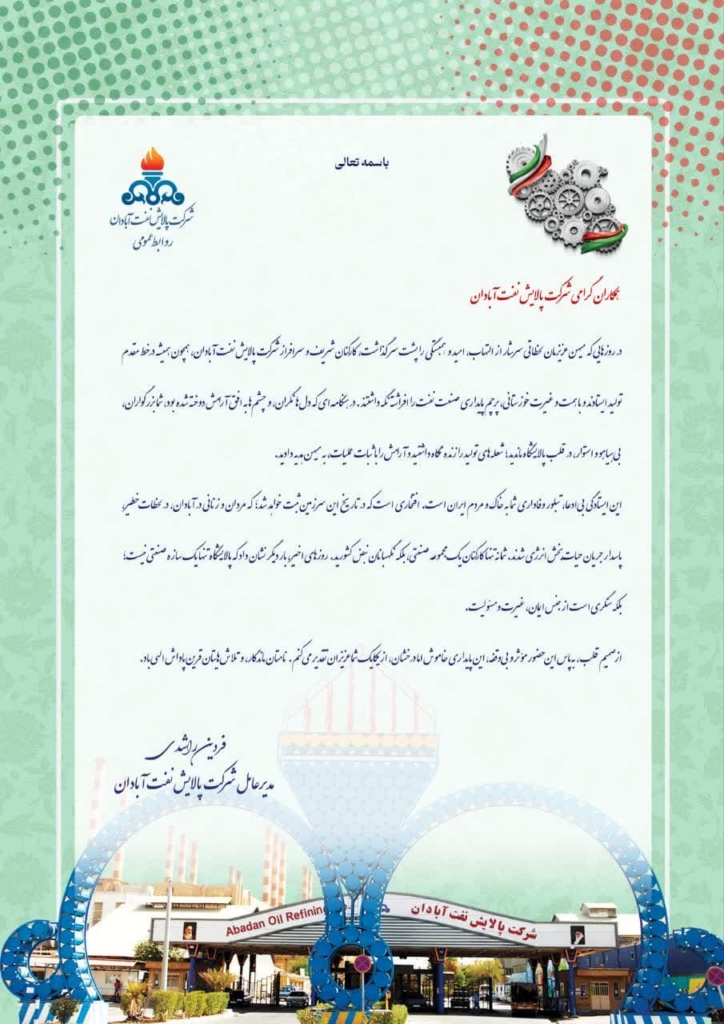 باسمه تعالی
شرکت پالایش نفت آبادان
روابط عمومی
همکاران گرامی شرکت پالایش نفت آبادان
در روزهایی که میهن عزیزمان لحظاتی سرشار از التهاب، امید و همبستگی را پشت سر گذاشت، کارکنان شریف و سرافراز شرکت پالایش نفت آبادان، همچون همیشه در خط مقدم
تولید ایستادند و با همت و غیرت خوزستانی، پرچم پایداری صنعت نفت را افراشته نگه داشتند. در هنگامه ای که دل ها نگران، و چشم ها به افق آرامش دوخته شده بود، شما بزرگواران،
بی هیاهو و استوار، در قلب پالایشگاه ماندید؛ شعله های تولید را زنده نگاه داشتید و آرامش را با ثبات عملیات، به میهن هدیه دادید.
این ایستادگی بی ادعا، تبلور وفاداری شما به خاک و مردم ایران است. افتخاری است که در تاریخ این سرزمین ثبت خواهد شد؛ که مردان و زنانی در آبادان، در لحظات خطیر،
پاسدار جریان حیات بخش انرژی شدند. شما نه تنها کارکنان یک مجموعه صنعتی، بلکه نگهبانان نبض کشورید. روزهای اخیر، بار دیگر نشان داد که پالایشگاه تنها یک سازه صنعتی نیست؛
بلکه سنگری است از جنس ایمان، غیرت و مسئولیت.
از صمیم قلب، به پاس این حضور مؤثر و بی وقفه، این پایداری خاموش اما درخشان، از یکایک شما عزیزان تقدیر می کنم. نامتان ماندگار، و تلاش هایتان قرین پاداش الهی باد.
فردین راشدی
مدیرعامل شرکت پالایش نفت آبادان
شرکت پالایش نفت آبادان
Abadan Oil Refining